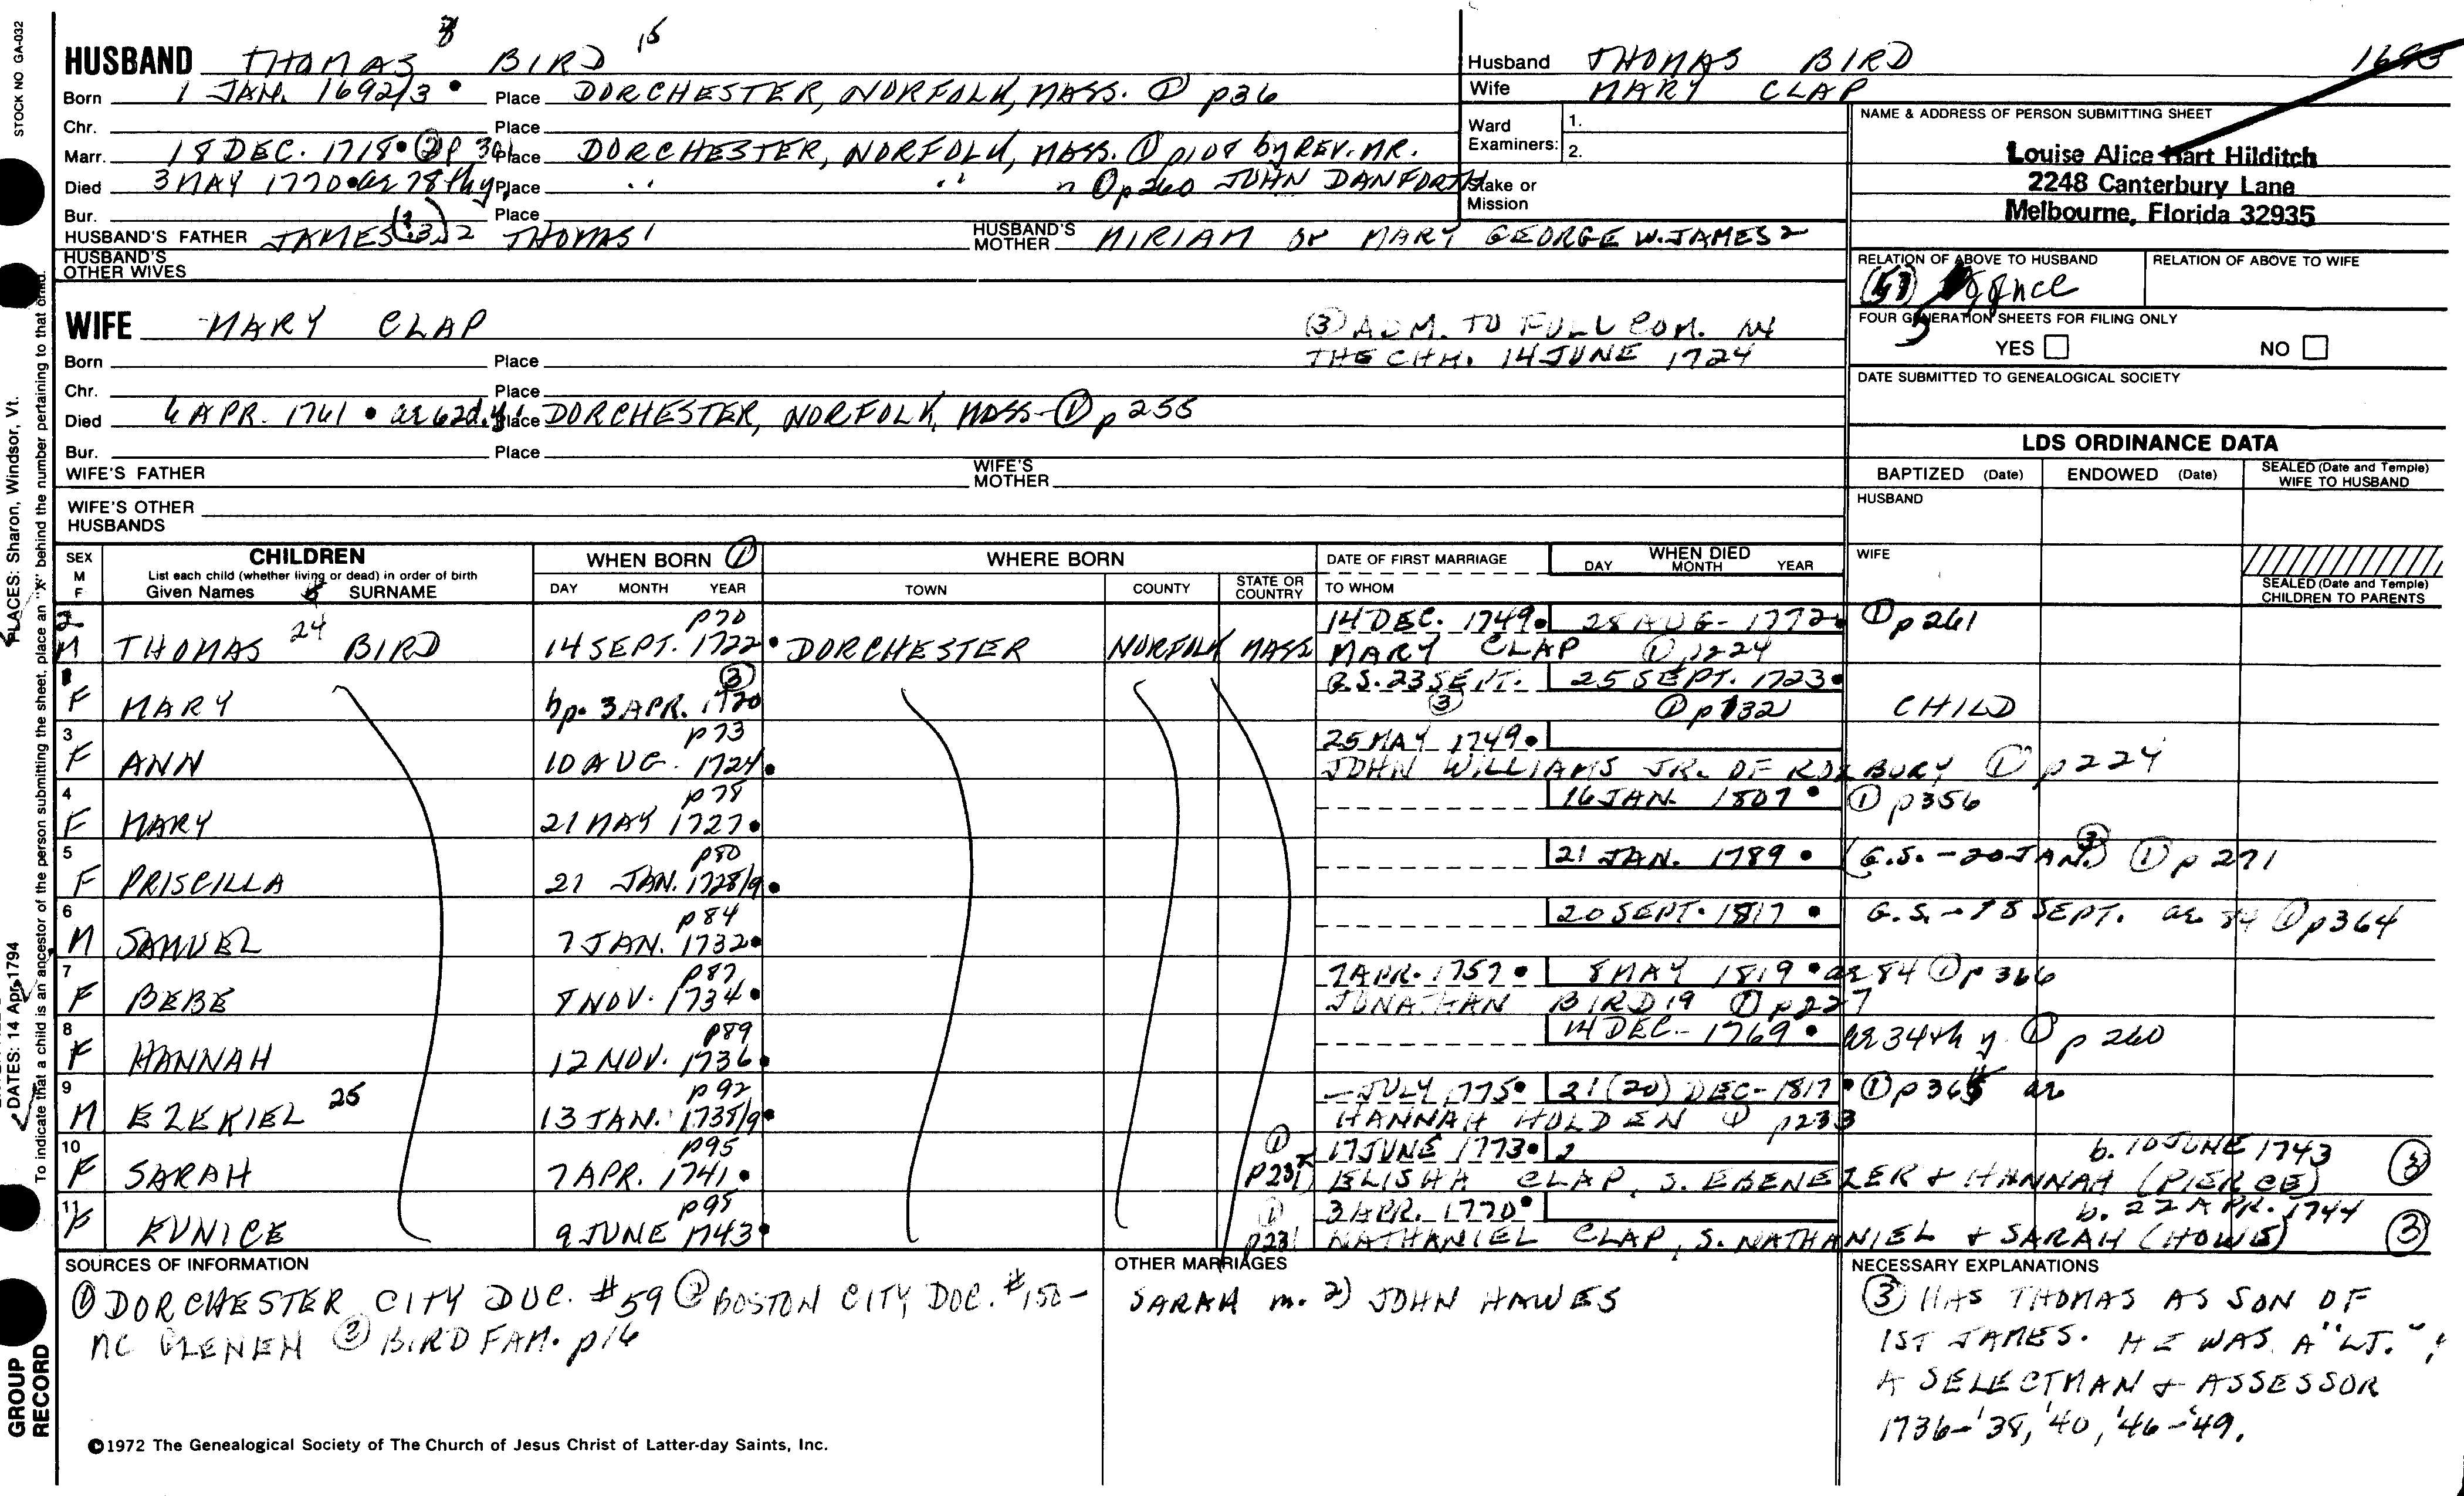 STOCK NO GA-032
PLACES: Sharon, Windsor, Vt.
DATES: 14 Apr 1794
To indicate that a child is an ancestor of the person submitting the sheet, place an "X" behind the number pertaining to that child.
GROUP RECORD
HUSBAND THOMAS 3 BIRD 15
Born 1 JAN. 1692/3 Place DORCHESTER, NORFOLK, MASS. ① p36
Chr. Place
Marr. 18 DEC. 1718 ② p Place DORCHESTER, NORFOLK, MASS. ① p108 by REV. MR. JOHN DANFORTH
Died 3 MAY 1770 ae 78th y. Place " " " ① p260
Bur. Place
HUSBAND'S FATHER JAMES 2 THOMAS 1 HUSBAND'S MOTHER MIRIAM or MARY GEORGE W. JAMES 2
HUSBAND'S OTHER WIVES
Husband THOMAS BIRD 1693
Wife MARY CLAP
Ward Examiners: 1.
2.
Stake or Mission
NAME & ADDRESS OF PERSON SUBMITTING SHEET
Louise Alice Hart Hilditch
2248 Canterbury Lane
Melbourne, Florida 32935
RELATION OF ABOVE TO HUSBAND RELATION OF ABOVE TO WIFE
FOUR GENERATION SHEETS FOR FILING ONLY
YES NO
DATE SUBMITTED TO GENEALOGICAL SOCIETY
WIFE MARY CLAP ③ ADM. TO FULL COM. W
Born Place THE CHH. 14 JUNE 1724
Chr. Place
Died 6 APR. 1761 ae 62d. y. Place DORCHESTER, NORFOLK, MASS - ① p 255
Bur. Place
WIFE'S FATHER WIFE'S MOTHER
WIFE'S OTHER HUSBANDS
LDS ORDINANCE DATA
BAPTIZED (Date) ENDOWED (Date) SEALED (Date and Temple) WIFE TO HUSBAND
HUSBAND
WIFE
SEALED (Date and Temple) CHILDREN TO PARENTS
SEX M F CHILDREN WHEN BORN ① WHERE BORN DATE OF FIRST MARRIAGE WHEN DIED
List each child (whether living or dead) in order of birth
Given Names SURNAME DAY MONTH YEAR TOWN COUNTY STATE OR COUNTRY TO WHOM DAY MONTH YEAR
2 p70 14 DEC. 1749 28 AUG - 1772 ① p 261
M THOMAS 24 BIRD 14 SEPT. 1722 DORCHESTER NORFOLK MASS MARY CLAP ① p224
1 ③ G.S. 23 SEPT. ③ 25 SEPT. 1723
F MARY bp. 3 APR. 1720 ① p 132 CHILD
3 p73 25 MAY 1749
F ANN 10 AUG. 1724 JOHN WILLIAMS JR. OF ROXBURY ① p 224
4 p78 16 JAN. 1807 ① p356
F MARY 21 MAY 1727
5 p80 21 JAN. 1789 (G.S. - 20 JAN.) ③ ① p 271
F PRISCILLA 21 JAN. 1728/9
6 p84 20 SEPT. 1817 G.S. - 18 SEPT. ae 84 ① p364
M SAMUEL 7 JAN. 1732
7 p87 7 APR. 1757 8 MAY 1819 ae 84 ① p 366
F BEBE 8 NOV. 1734 JONATHAN BIRD 19 ① p227
8 p89 14 DEC - 1769 ae 34th y. ① p 260
F HANNAH 12 NOV. 1736
9 p92 - JULY 1775 21 (20) DEC - 1817 ① p 364 ae
M EZEKIEL 25 13 JAN. 1738/9 HANNAH HOLDEN ① p233
10 p95 ① 17 JUNE 1773 2 b. 10 JUNE 1743
F SARAH 7 APR. 1741 p232 ELISHA CLAP, S. EBENEZER + HANNAH (PIERCE) ③
11 p98 ① 3 APR. 1770 b. 22 APR. 1744
F EUNICE 9 JUNE 1743 p231 NATHANIEL CLAP, S. NATHANIEL + SARAH (HOWE) ③
SOURCES OF INFORMATION
① DORCHESTER CITY DOC. #59 ② BOSTON CITY DOC. #150 -
③ BIRD FAM. p16
OTHER MARRIAGES
SARAH m. 2) JOHN HAWES
NECESSARY EXPLANATIONS
③ HAS THOMAS AS SON OF
1ST JAMES. HE WAS A "LT.";
A SELECTMAN + ASSESSOR
1736-'38, '40, '46-'49.
©1972 The Genealogical Society of The Church of Jesus Christ of Latter-day Saints, Inc.